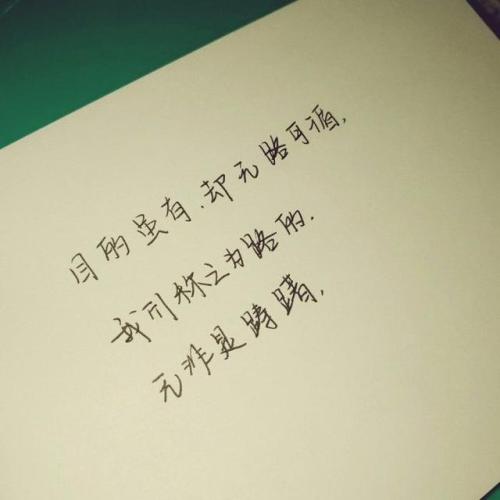 目的虽有.却无路可循,
我们称之为路的.
无非是踌躇,